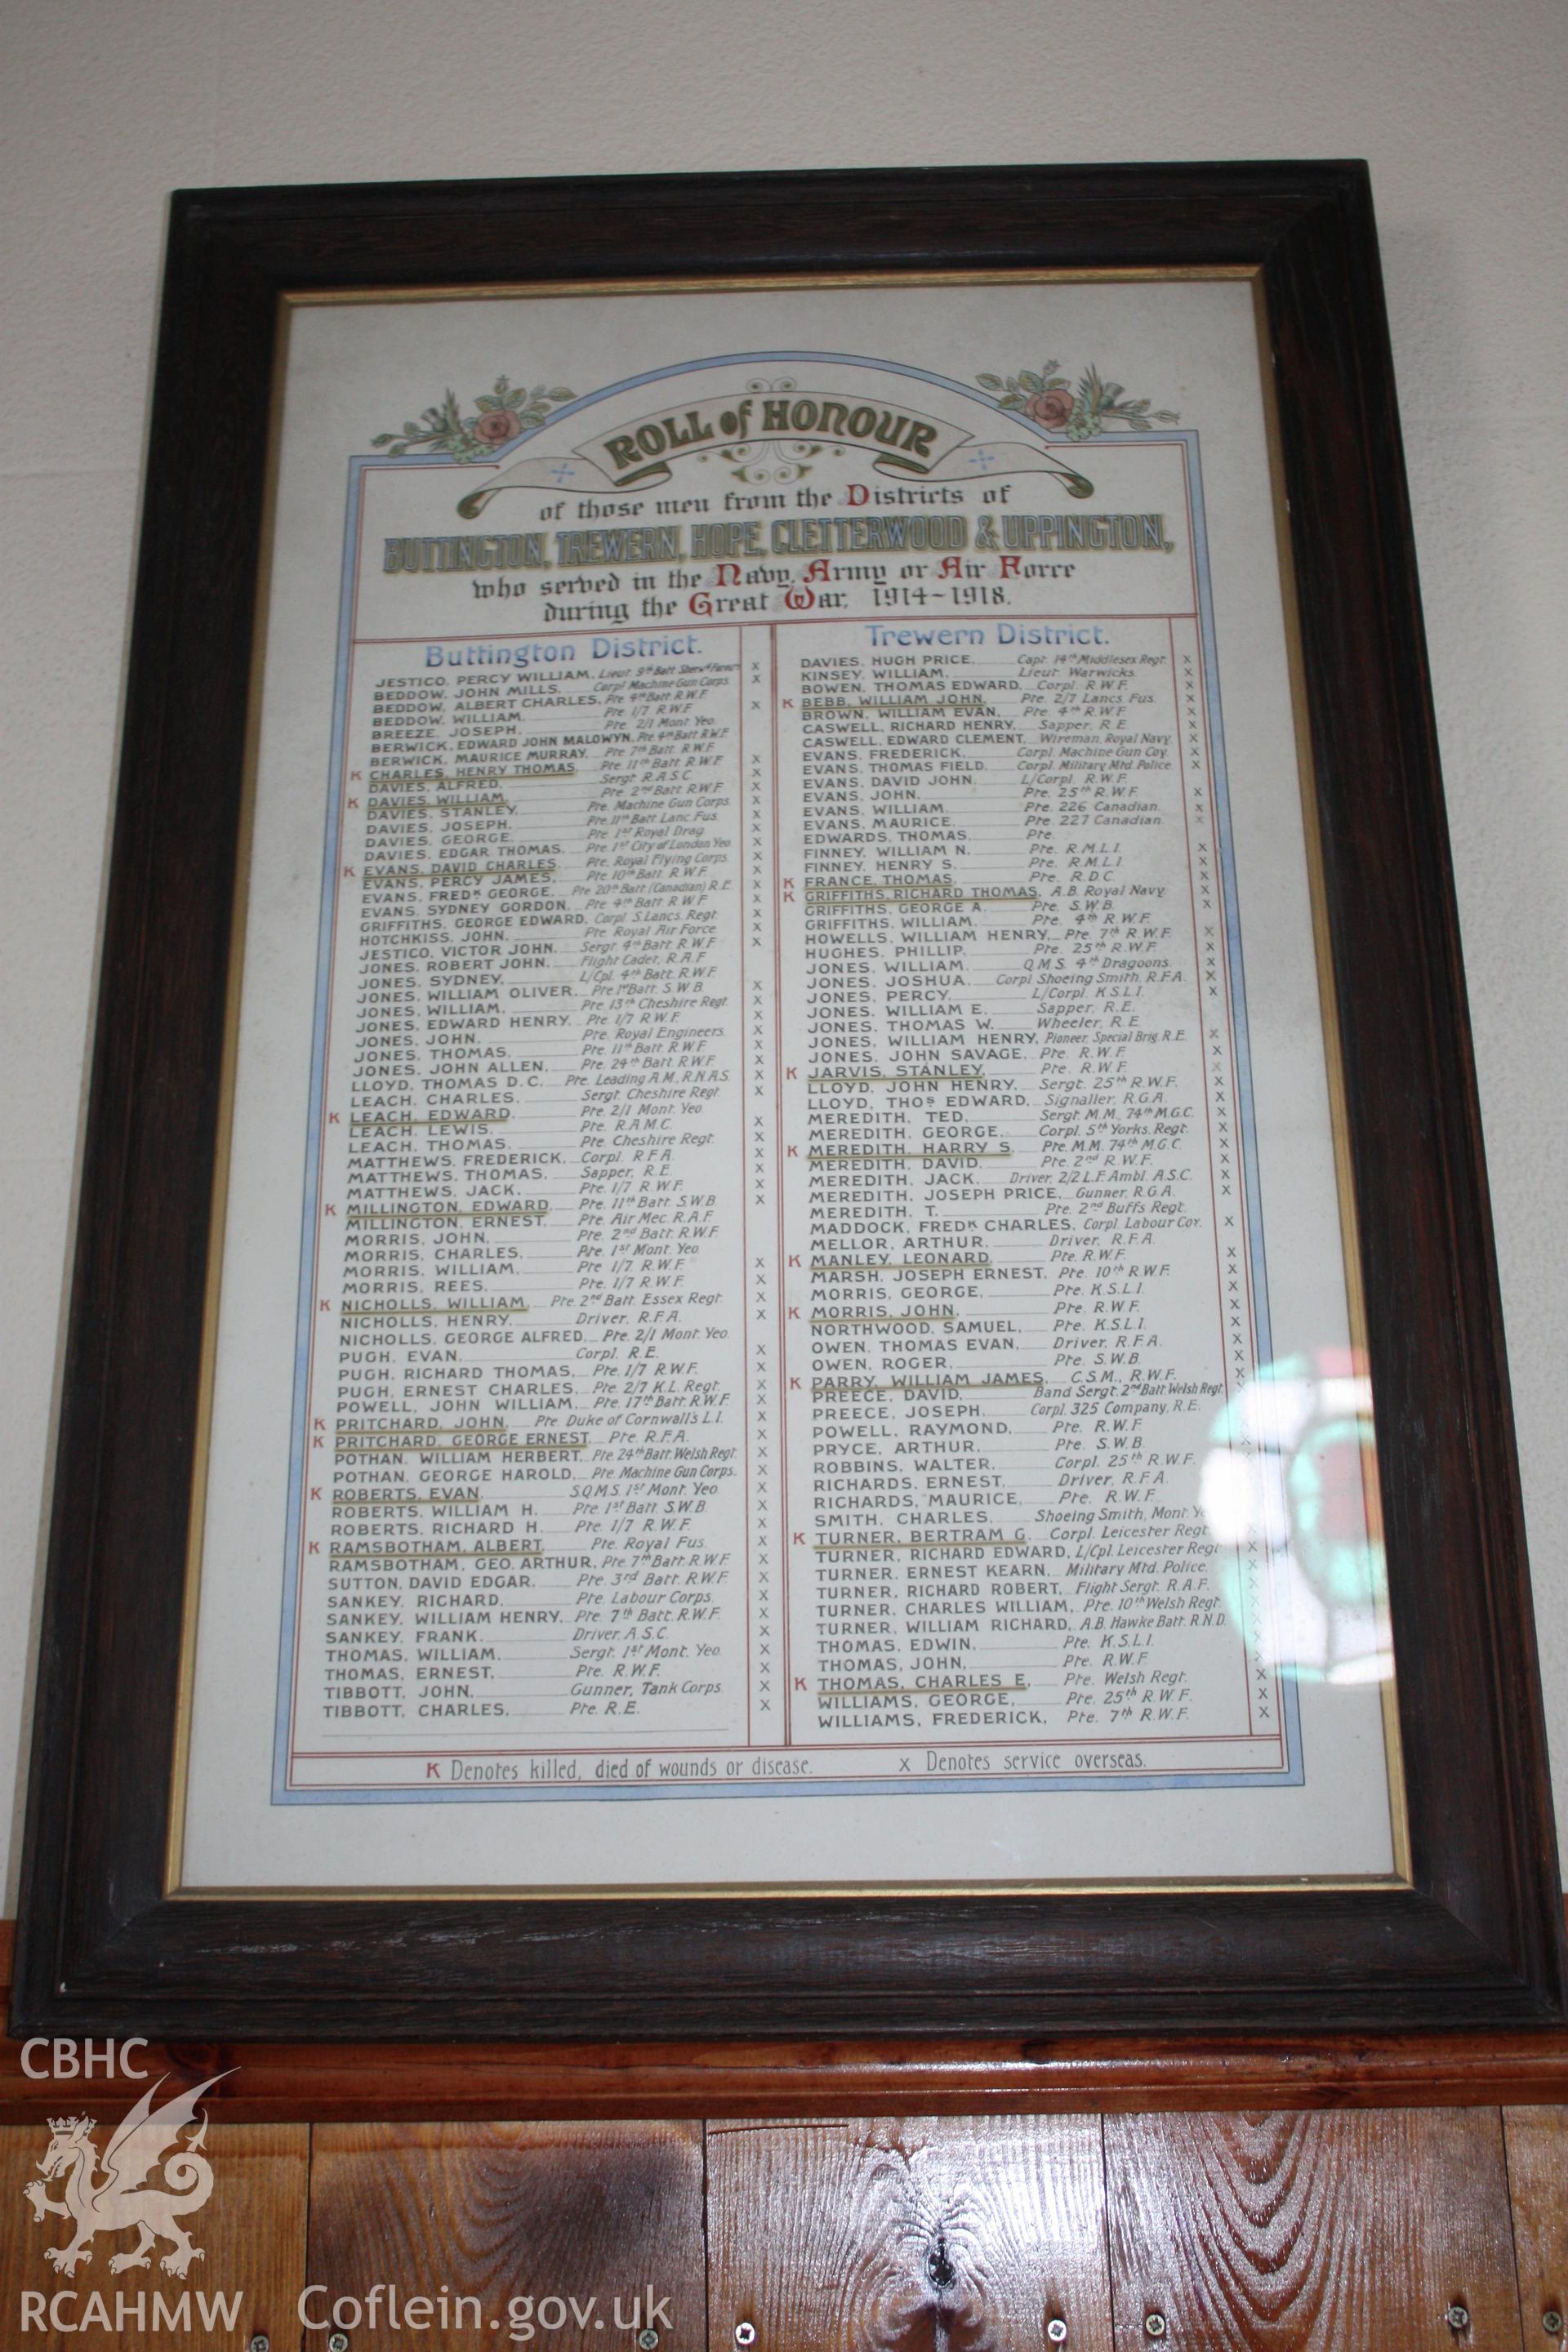 ROLL of HONOUR
of those men from the Districts of
BUTTINGTON, TREWERN, HOPE, CLETTERWOOD & UPPINGTON,
who served in the Navy, Army or Air Force
during the Great War, 1914~1918.
Buttington District.
JESTICO, PERCY WILLIAM, Lieut. 9th Batt. Sherwd Forestrs X
BEDDOW, JOHN MILLS. Corpl Machine Gun Corps X
BEDDOW, ALBERT CHARLES, Pte 4th Batt. R.W.F.
BEDDOW, WILLIAM. Pte 1/7 R.W.F. X
BREEZE, JOSEPH. Pte 2/1 Mont. Yeo.
BERWICK, EDWARD JOHN MALOWYN, Pte 4th Batt R.W.F.
BERWICK, MAURICE MURRAY. Pte 7th Batt. R.W.F.
K CHARLES, HENRY THOMAS. Pte. 11th Batt. R.W.F. X
DAVIES, ALFRED. Sergt. R.A.S.C. X
K DAVIES, WILLIAM. Pte. 2nd Batt. R.W.F. X
DAVIES, STANLEY. Pte. Machine Gun Corps. X
DAVIES, JOSEPH. Pte. 11th Batt. Lanc. Fus. X
DAVIES, GEORGE. Pte. 1st Royal Drag. X
DAVIES, EDGAR THOMAS. Pte. 1st City of London Yeo X
K EVANS, DAVID CHARLES. Pte. Royal Flying Corps. X
EVANS, PERCY JAMES, Pte. 10th Batt. R.W.F. X
EVANS, FREDK GEORGE. Pte 20th Batt (Canadian) R.E. X
EVANS, SYDNEY GORDON. Pte 4th Batt. R.W.F. X
GRIFFITHS, GEORGE EDWARD. Corpl. S. Lancs. Regt. X
HOTCHKISS, JOHN. Pte. Royal Air Force X
JESTICO, VICTOR JOHN. Sergt. 4th Batt. R.W.F. X
JONES, ROBERT JOHN. Flight Cadet, R.A.F.
JONES, SYDNEY. L/Cpl. 4th Batt. R.W.F.
JONES, WILLIAM OLIVER. Pte 1st Batt. S.W.B. X
JONES, WILLIAM. Pte 13th Cheshire Regt. X
JONES, EDWARD HENRY. Pte. 1/7 R.W.F. X
JONES, JOHN. Pte. Royal Engineers. X
JONES, THOMAS. Pte. 11th Batt. R.W.F. X
JONES, JOHN ALLEN. Pte. 24th Batt. R.W.F. X
LLOYD, THOMAS D.C. Pte. Leading A.M., R.N.A.S. X
LEACH, CHARLES. Sergt. Cheshire Regt. X
K LEACH, EDWARD. Pte. 2/1 Mont. Yeo.
LEACH, LEWIS, Pte. R.A.M.C. X
LEACH, THOMAS. Pte. Cheshire Regt. X
MATTHEWS, FREDERICK, Corpl. R.F.A. X
MATTHEWS, THOMAS. Sapper, R.E. X
MATTHEWS, JACK, Pte. 1/7 R.W.F. X
K MILLINGTON, EDWARD. Pte. 11th Batt. S.W.B X
MILLINGTON, ERNEST, Pte. Air Mec. R.A.F.
MORRIS, JOHN. Pte. 2nd Batt. R.W.F.
MORRIS, CHARLES, Pte. 1st Mont. Yeo.
MORRIS, WILLIAM. Pte 1/7 R.W.F. X
MORRIS, REES, Pte. 1/7 R.W.F. X
K NICHOLLS, WILLIAM, Pte. 2nd Batt. Essex Regt. X
NICHOLLS, HENRY. Driver, R.F.A. X
NICHOLLS, GEORGE ALFRED. Pte. 2/1 Mont. Yeo.
PUGH, EVAN. Corpl. R.E. X
PUGH, RICHARD THOMAS, Pte. 1/7 R.W.F. X
PUGH, ERNEST CHARLES, Pte. 2/7 K.L. Regt. X
POWELL, JOHN WILLIAM, Pte. 17th Batt. R.W.F. X
K PRITCHARD, JOHN. Pte. Duke of Cornwall's L.I. X
K PRITCHARD, GEORGE ERNEST, Pte. R.F.A. X
POTHAN, WILLIAM HERBERT, Pte. 24th Batt. Welsh Regt. X
POTHAN, GEORGE HAROLD, Pte. Machine Gun Corps. X
K ROBERTS, EVAN. S.Q.M.S. 1st Mont. Yeo X
ROBERTS, WILLIAM H. Pte 1st Batt. S.W.B. X
ROBERTS, RICHARD H. Pte. 1/7 R.W.F. X
K RAMSBOTHAM, ALBERT, Pte. Royal Fus. X
RAMSBOTHAM, GEO. ARTHUR, Pte. 7th Batt. R.W.F. X
SUTTON, DAVID EDGAR. Pte. 3rd Batt. R.W.F. X
SANKEY, RICHARD. Pte. Labour Corps. X
SANKEY, WILLIAM HENRY. Pte 7th Batt. R.W.F. X
SANKEY, FRANK. Driver, A.S.C. X
THOMAS, WILLIAM. Sergt. 1st Mont. Yeo. X
THOMAS, ERNEST. Pte. R.W.F. X
TIBBOTT, JOHN. Gunner, Tank Corps. X
TIBBOTT, CHARLES, Pte. R.E. X
Trewern District.
DAVIES, HUGH PRICE. Capt. 14th Middlesex Regt. X
KINSEY, WILLIAM. Lieut. Warwicks. X
BOWEN, THOMAS EDWARD. Corpl. R.W.F. X
K BEBB, WILLIAM JOHN. Pte. 2/7 Lancs Fus. X
BROWN, WILLIAM EVAN, Pte. 4th R.W.F. X
CASWELL, RICHARD HENRY, Sapper, R.E. X
CASWELL, EDWARD CLEMENT, Wireman, Royal Navy X
EVANS, FREDERICK. Corpl. Machine Gun Coy. X
EVANS, THOMAS FIELD. Corpl. Military Mtd. Police. X
EVANS, DAVID JOHN. L/Corpl. R.W.F.
EVANS, JOHN. Pte. 25th R.W.F. X
EVANS, WILLIAM. Pte. 226 Canadian. X
EVANS, MAURICE. Pte. 227 Canadian. X
EDWARDS, THOMAS. Pte.
FINNEY, WILLIAM N. Pte. R.M.L.I. X
FINNEY, HENRY S. Pte. R.M.L.I. X
K FRANCE, THOMAS. Pte. R.D.C. X
K GRIFFITHS, RICHARD THOMAS. A.B. Royal Navy X
GRIFFITHS, GEORGE A. Pte. S.W.B. X
GRIFFITHS, WILLIAM. Pte. 4th R.W.F.
HOWELLS, WILLIAM HENRY. Pte. 7th R.W.F. X
HUGHES, PHILLIP. Pte. 25th R.W.F. X
JONES, WILLIAM. Q.M.S. 4th Dragoons X
JONES, JOSHUA. Corpl Shoeing Smith, R.F.A. X
JONES, PERCY. L/Corpl. K.S.L.I. X
JONES, WILLIAM E. Sapper, R.E.
JONES, THOMAS W. Wheeler, R.E.
JONES, WILLIAM HENRY, Pioneer, Special Brig. R.E. X
JONES, JOHN SAVAGE, Pte. R.W.F. X
K JARVIS, STANLEY. Pte. R.W.F. X
LLOYD, JOHN HENRY. Sergt. 25th R.W.F. X
LLOYD, THOS EDWARD. Signaller, R.G.A. X
MEREDITH, TED. Sergt. M.M. 74th M.G.C. X
MEREDITH, GEORGE. Corpl. 5th Yorks. Regt. X
K MEREDITH, HARRY S. Pte. M.M. 74th M.G.C. X
MEREDITH, DAVID. Pte. 2nd R.W.F. X
MEREDITH, JACK. Driver, 2/2 L.F. Ambl. A.S.C. X
MEREDITH, JOSEPH PRICE, Gunner, R.G.A. X
MEREDITH, T. Pte. 2nd Buffs Regt.
MADDOCK, FREDK CHARLES, Corpl. Labour Coy. X
MELLOR, ARTHUR. Driver, R.F.A.
K MANLEY, LEONARD. Pte. R.W.F. X
MARSH, JOSEPH ERNEST, Pte. 10th R.W.F. X
MORRIS, GEORGE, Pte. K.S.L.I. X
K MORRIS, JOHN. Pte. R.W.F. X
NORTHWOOD, SAMUEL, Pte. K.S.L.I. X
OWEN, THOMAS EVAN, Driver, R.F.A. X
OWEN, ROGER, Pte. S.W.B. X
K PARRY, WILLIAM JAMES, C.S.M., R.W.F. X
PREECE, DAVID, Band Sergt. 2nd Batt. Welsh Regt.
PREECE, JOSEPH. Corpl. 325 Company, R.E.
POWELL, RAYMOND, Pte. R.W.F.
PRYCE, ARTHUR, Pte. S.W.B.
ROBBINS, WALTER. Corpl. 25th R.W.F.
RICHARDS, ERNEST, Driver, R.F.A.
RICHARDS, MAURICE, Pte. R.W.F.
SMITH, CHARLES. Shoeing Smith, Mont.
K TURNER, BERTRAM G. Corpl. Leicester Regt.
TURNER, RICHARD EDWARD, L/Cpl. Leicester Regt. X
TURNER, ERNEST KEARN. Military Mtd. Police. X
TURNER, RICHARD ROBERT, Flight Sergt. R.A.F. X
TURNER, CHARLES WILLIAM, Pte. 10th Welsh Regt. X
TURNER, WILLIAM RICHARD, A.B. Hawke Batt. R.N.D. X
THOMAS, EDWIN. Pte. K.S.L.I. X
THOMAS, JOHN, Pte. R.W.F. X
K THOMAS, CHARLES E. Pte. Welsh Regt. X
WILLIAMS, GEORGE, Pte. 25th R.W.F. X
WILLIAMS, FREDERICK, Pte. 7th R.W.F. X
K Denotes killed, died of wounds or disease. X Denotes service overseas.
CBHC
RCAHMW
Coflein.gov.uk